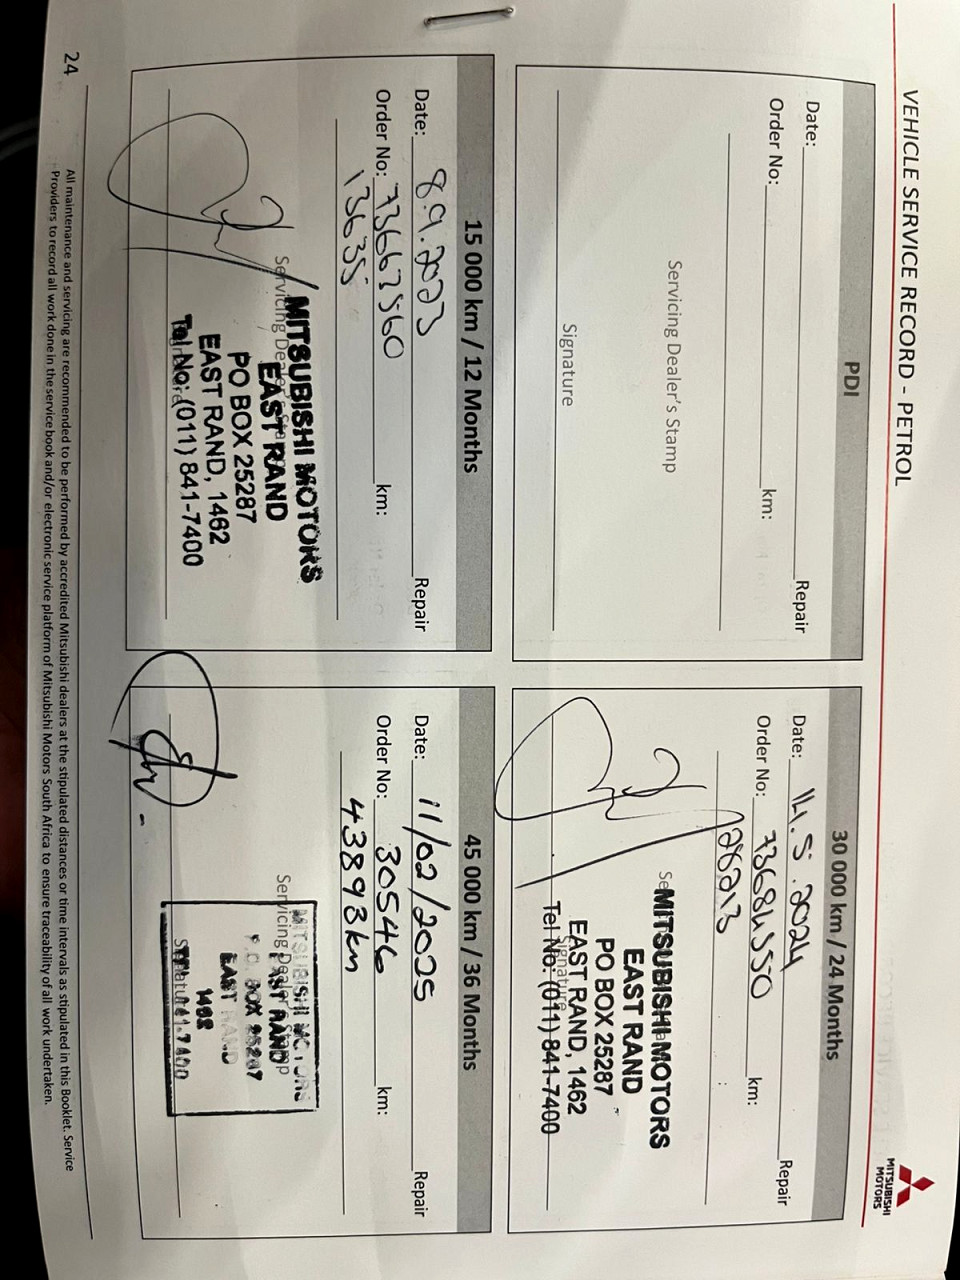 VEHICLE SERVICE RECORD - PETROL
MITSUBISHI
MOTORS
PDI
Date: Repair
Order No: km:
Servicing Dealer's Stamp
Signature
30 000 km / 24 Months
Date: 14.5.2024 Repair
Order No: km:
28213
MITSUBISHI MOTORS
EAST RAND
PO BOX 25287
EAST RAND, 1462
Signature
Tel No: (011) 841-7400
15 000 km / 12 Months
Date: 8.9.2023 Repair
Order No: km:
13635
Servicing Dealer's Stamp
MITSUBISHI MOTORS
EAST RAND
PO BOX 25287
EAST RAND, 1462
Tel No: (011) 841-7400
45 000 km / 36 Months
Date: 11/02/2025 Repair
Order No: 30546 km:
43893km
Servicing Dealer's Stamp
MITSUBISHI MOTORS
EAST RAND
P.O. BOX 25287
EAST RAND
Signature
All maintenance and servicing are recommended to be performed by accredited Mitsubishi dealers at the stipulated distances or time intervals as stipulated in this Booklet. Service
Providers to record all work done in the service book and/or electronic service platform of Mitsubishi Motors South Africa to ensure traceability of all work undertaken.
24